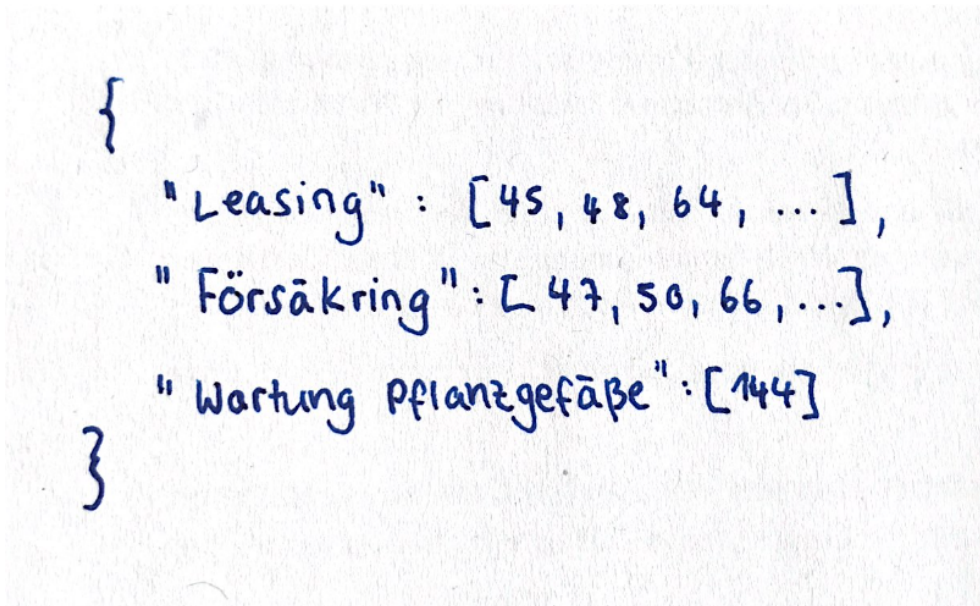 {
"Leasing" : [45, 48, 64, ...],
"Försäkring" : [47, 50, 66, ...],
"Wartung Pflanzgefäße" : [144]
}